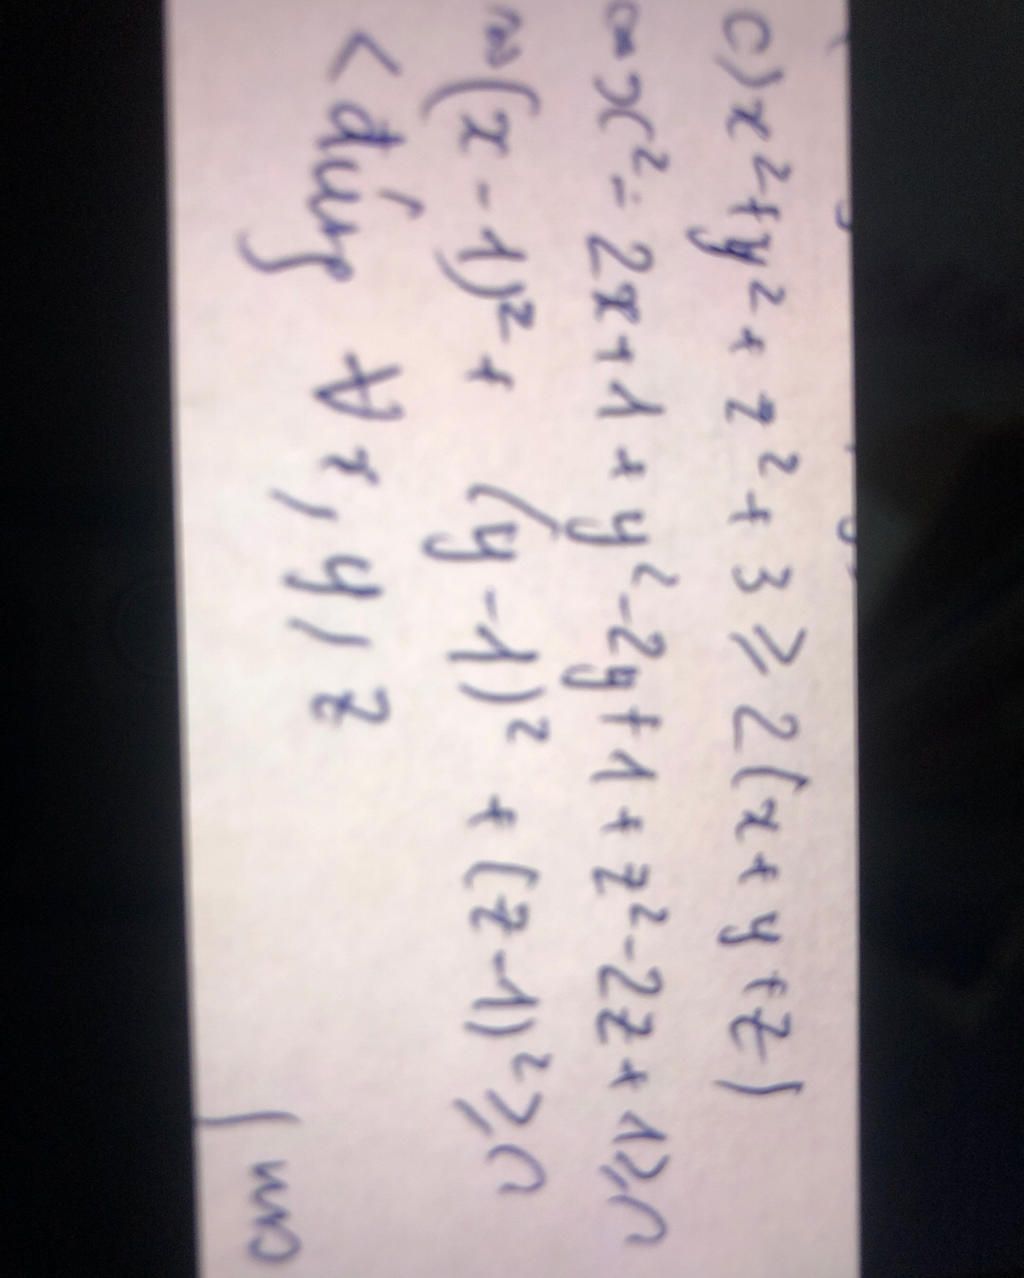 c) x² + y² + z² + 3 ⩾ 2(x + y + z)
x² - 2x + 1 + y² - 2y + 1 + z² - 2z + 1 ⩾ 0
(x - 1)² + (y - 1)² + (z - 1)² ⩾ 0
< đúng ∀ x, y, z